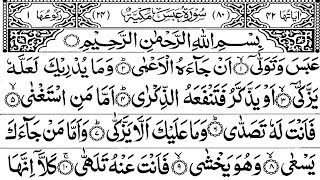 اٰیَاتُهَا ٤٢ (٨٠) سُوْرَةُ عَبَسَ مَكِّیَّةٌ (٢٤) رُكُوْعُهَا ١
بِسْمِ اللّٰهِ الرَّحْمٰنِ الرَّحِیْمِ
عَبَسَ وَتَوَلّٰۤی ۙ﴿١﴾ اَنْ جَآءَهُ الْاَعْمٰی ؕ﴿٢﴾ وَمَا یُدْرِیْكَ لَعَلَّهٗ
یَزَّكّٰۤی ۙ﴿٣﴾ اَوْ یَذَّكَّرُ فَتَنْفَعَهُ الذِّكْرٰی ؕ﴿٤﴾ اَمَّا مَنِ اسْتَغْنٰی ۙ﴿٥﴾
فَاَنْتَ لَهٗ تَصَدّٰی ؕ﴿٦﴾ وَمَا عَلَیْكَ اَلَّا یَزَّكّٰی ؕ﴿٧﴾ وَاَمَّا مَنْ جَآءَكَ
یَسْعٰی ۙ﴿٨﴾ وَهُوَ یَخْشٰی ۙ﴿٩﴾ فَاَنْتَ عَنْهُ تَلَهّٰی ۚ﴿١٠﴾ كَلَّاۤ اِنَّهَا